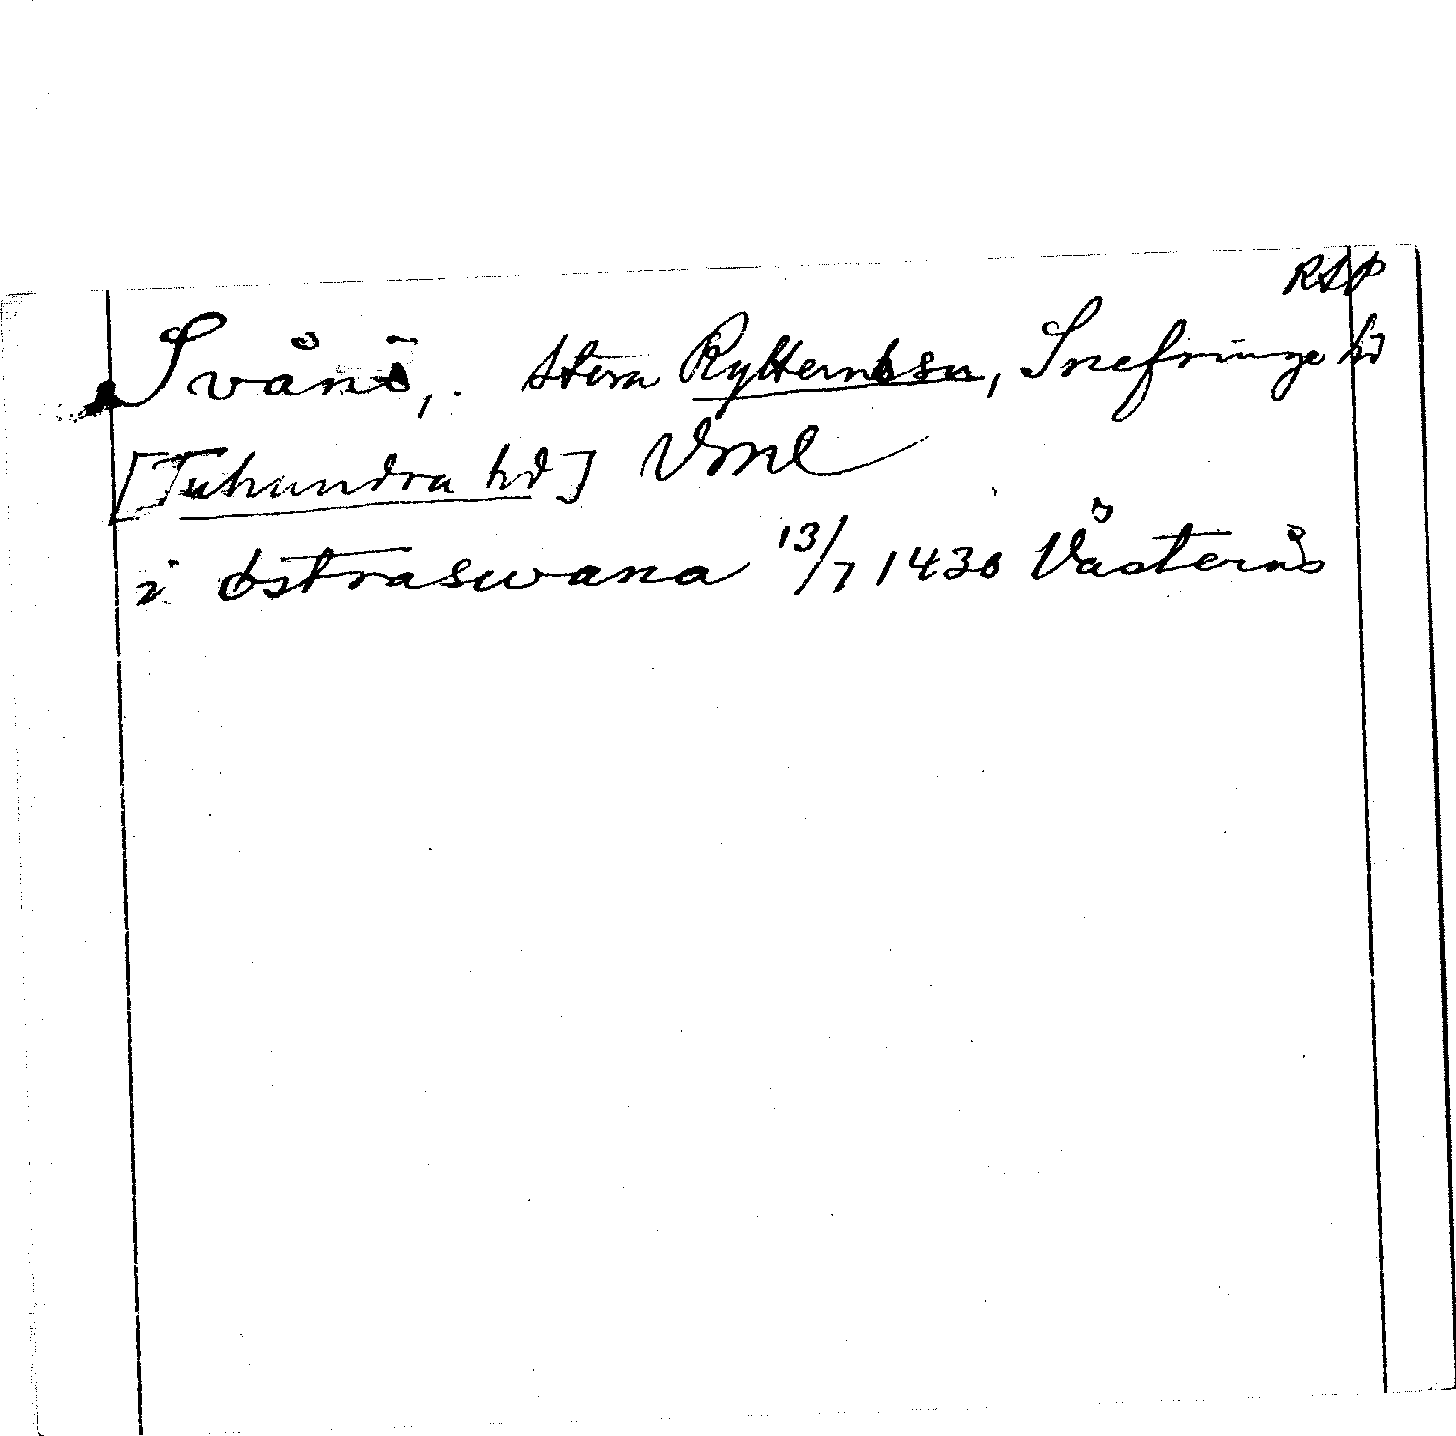 RAP
Svånö, Stora Rytterns sn, Snefringe hd
[Tuhundra hd] Vml
i østraswana 13/7 1430 Västerås